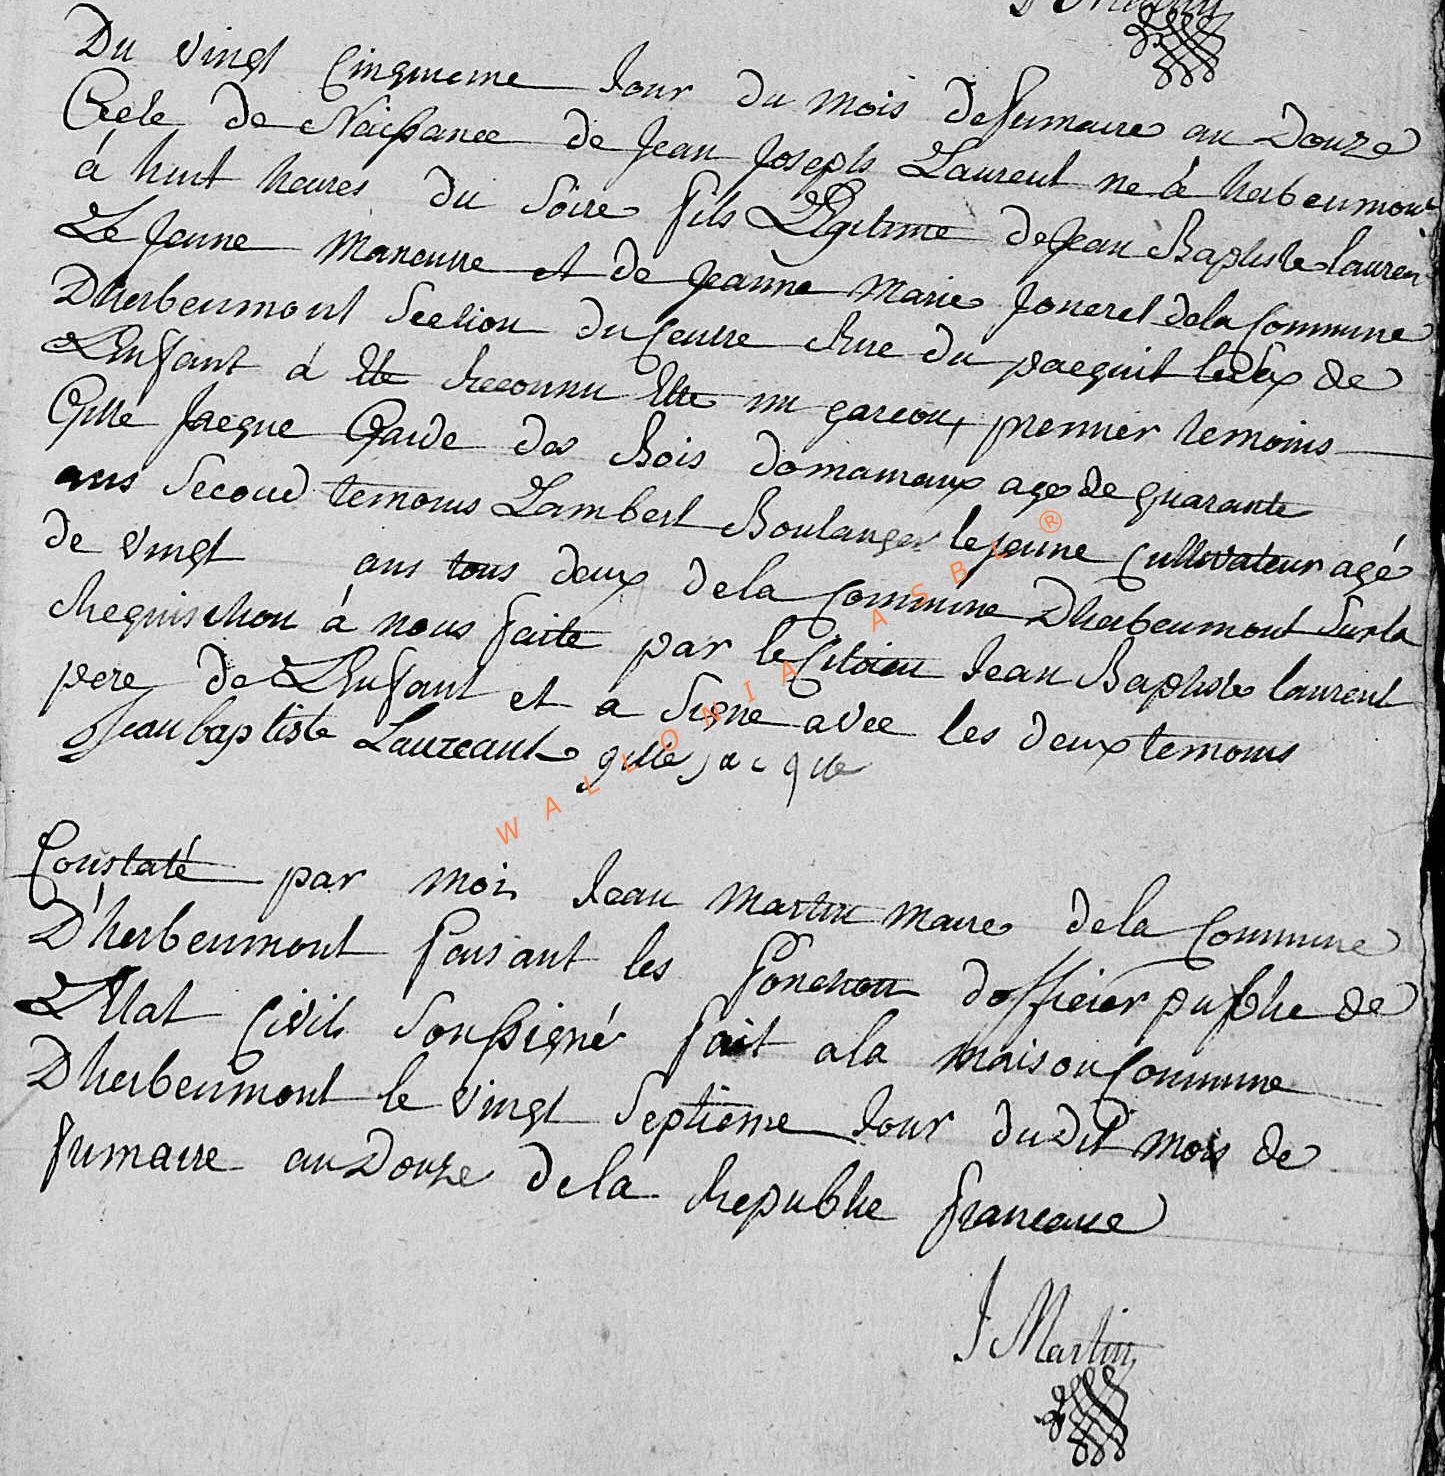 J Martin
Du vingt Cinquieme Jour du mois defrumaire an Douze
Acte de Naissance de Jean Joseph Laurent né à herbeumont
á huit heures du Soire fils Légitime deJean Baptiste lauren
Le Jeune Maneuvre et de Jeanne Marie Joneret dela Commune
Dherbeumont Section du Centre Rue du pacquit le Sex de
L'Enfant á été Reconnu Etre un garcon, premier temoins
Gille Jacque Garde des Bois domaniaux age de quarante
ans Second temoins Lambert Boulanger le jeune Cultivateur agé
de vingt ans tous deux dela Commune Dherbeumont Sur la
Requisition á nous faite par le Citoien Jean Baptiste laurent
pere de L'Enfant et a Signe avec les deux temoins
Jean baptiste Laureant gille jacque
WALLONIA ASBL ®
Constaté par moi Jean Martin maire dela Commune
D'herbeumont faisant les fonction dofficier publie de
L'Etat Civil Soussigné fait ala maison Commune
Dherbeumont le vingt Septieme Jour du Dit mois de
frumaire an Douze dela Republie francaise
J Martin